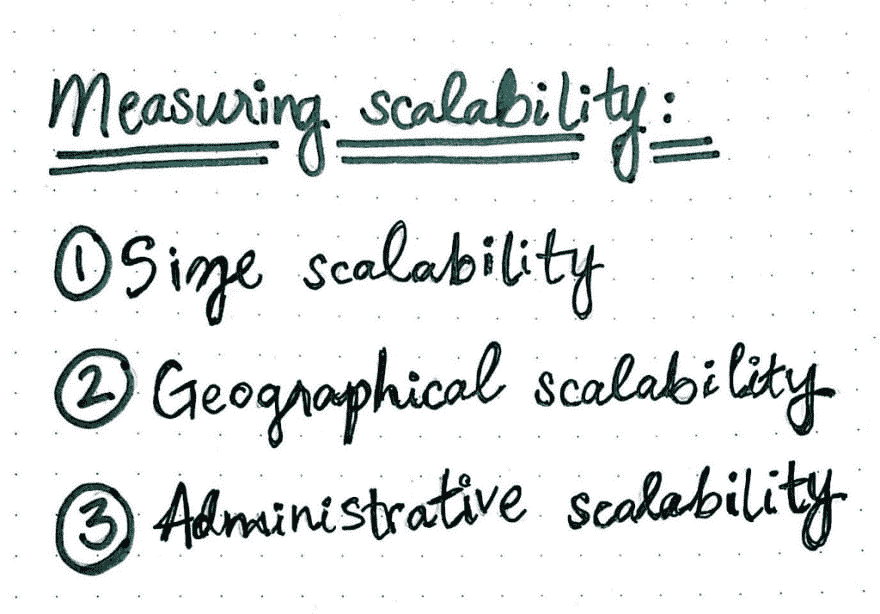 Measuring scalability:
① Size scalability
② Geographical scalability
③ Administrative scalability